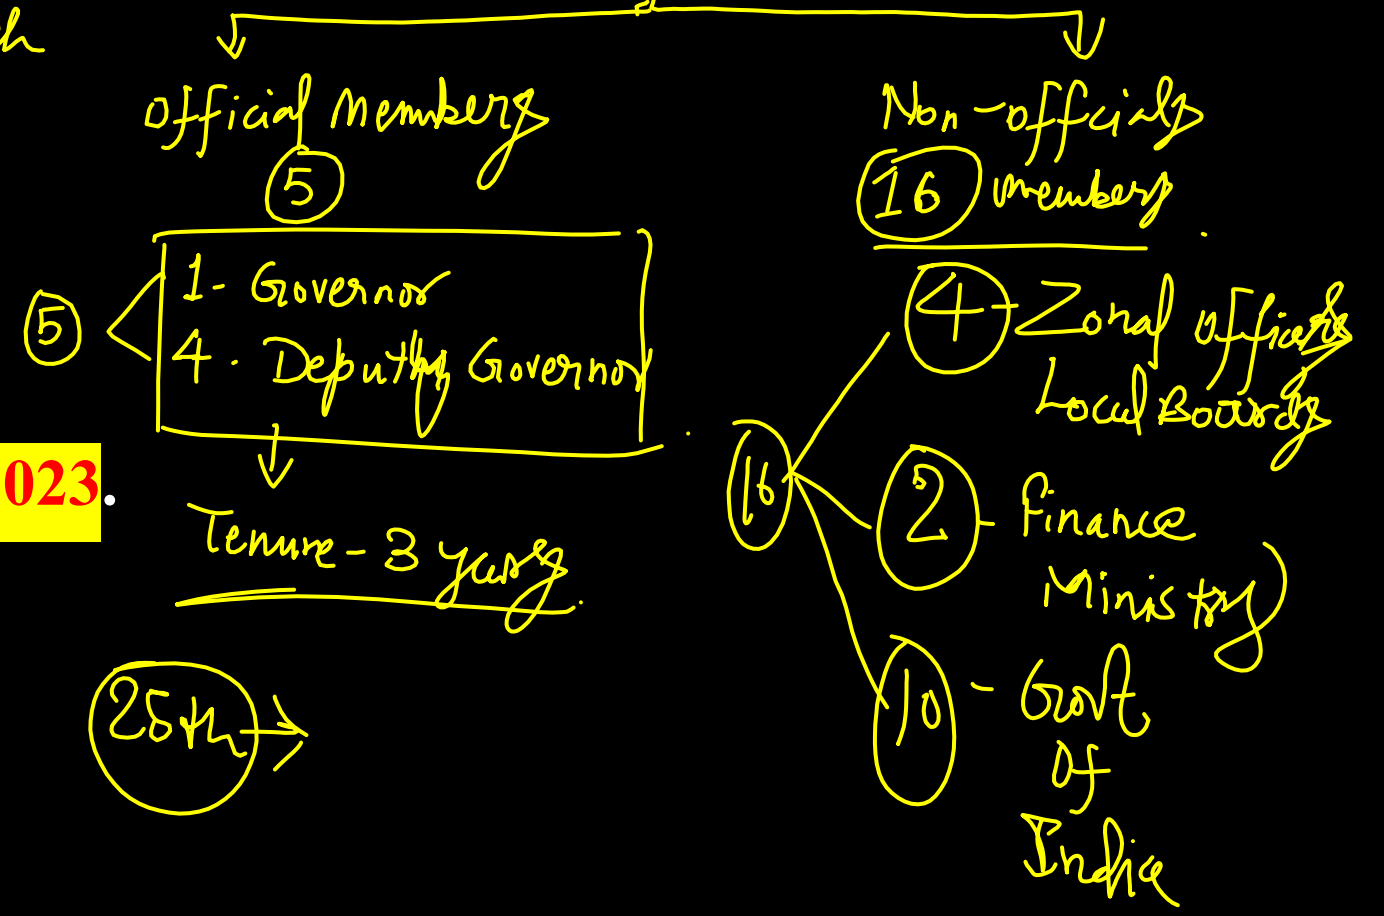 Official Members
5
1- Governor
4. Deputy Governor
5
Tenure - 3 years
25th
023.
Non-officials
16 members
4 - Zonal officers
Local Boards
16
2 - Finance
Ministry
10 - Govt
Of
India